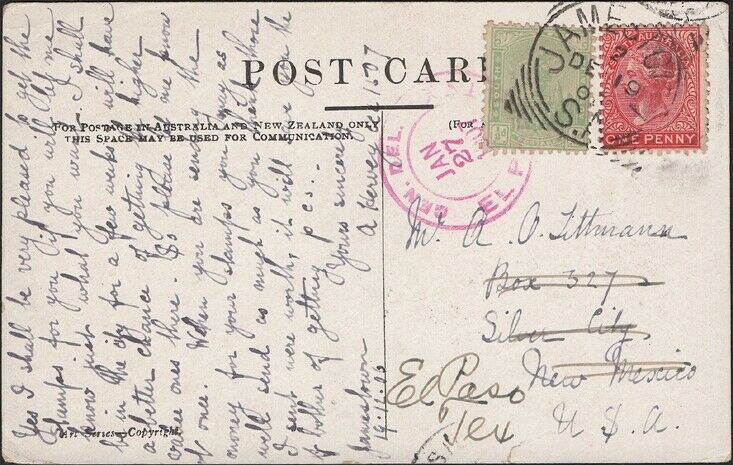 POST CARD
FOR POSTAGE IN AUSTRALIA AND NEW ZEALAND ONLY
THIS SPACE MAY BE USED FOR COMMUNICATION.
(FOR A
Yes I shall be very pleased to get the
stamps for you if you will let me
know just what you want. I shall
be in the city for a few weeks & will have
a better chance of getting higher
value ones there. So please let me know
at once. When you are sending the
money for your stamps you may as
well send as much as you think those
I sent were worth, it will save you the
bother of getting p.c..
Yours sincerely
A Hervey
Jamestown
19.11.06
Art Series Copyright.
ONE PENNY
JAMES
GEN. DEL.
JAN
27
EL P
Mr. A. O. Tittmann
Box 327
Silver City
New Mexico
U. S. A.
El Paso
Tex